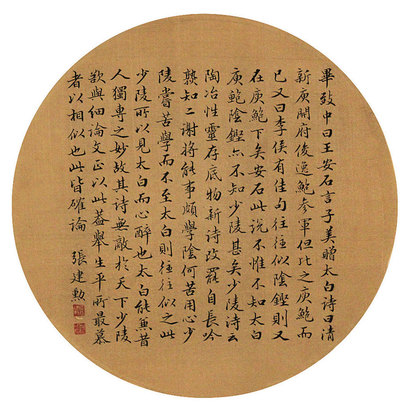 畢致中曰王安石言子美贈太白詩曰清
新庾開府俊逸鮑參軍但比之庾鮑而
已又曰李侯有佳句往往似陰鏗則又
在庾鮑下矣安石此說不惟不知太白
庾鮑陰鏗亦不知少陵甚矣少陵詩云
陶冶性靈存底物新詩改罷自長吟
熟知二謝將能事頗學陰何苦用心少
陵嘗苦學而不至太白則往往似之此
少陵所以見太白而心醉也太白能兼昔
人獨專之妙故其詩無敵於天下少陵
欲與細論文正以此蓋舉生平所最慕
者以相似也此皆確論
張建勳